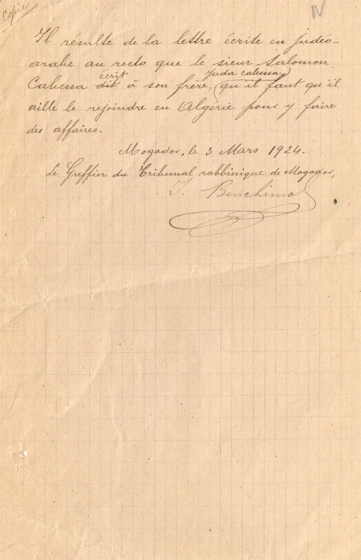 Copie
Il résulte de la lettre écrite en Judéo-
arabe au recto que le sieur Salomon
écrit Juda cabessa
Cabessa dit à son frère, qu'il faut qu'il
aille le rejoindre en Algérie pour y faire
des affaires.
Mogador, le 3 Mars 1924.
Le Greffier du Tribunal rabbinique de Mogador,